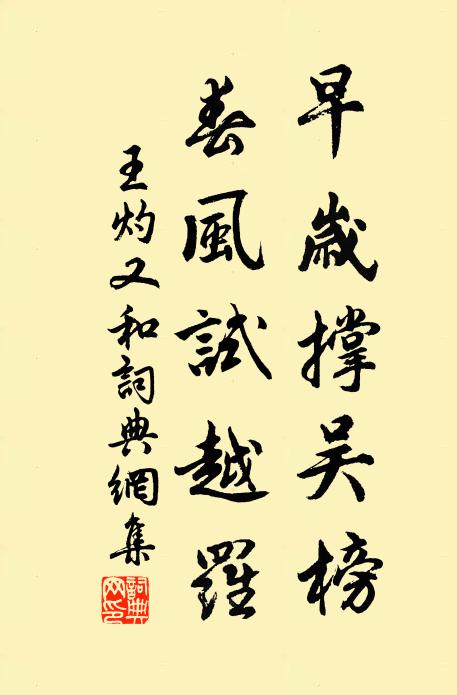 早歲撐吳榜
春風試越羅
王灼又和詞典網集
詞典網印